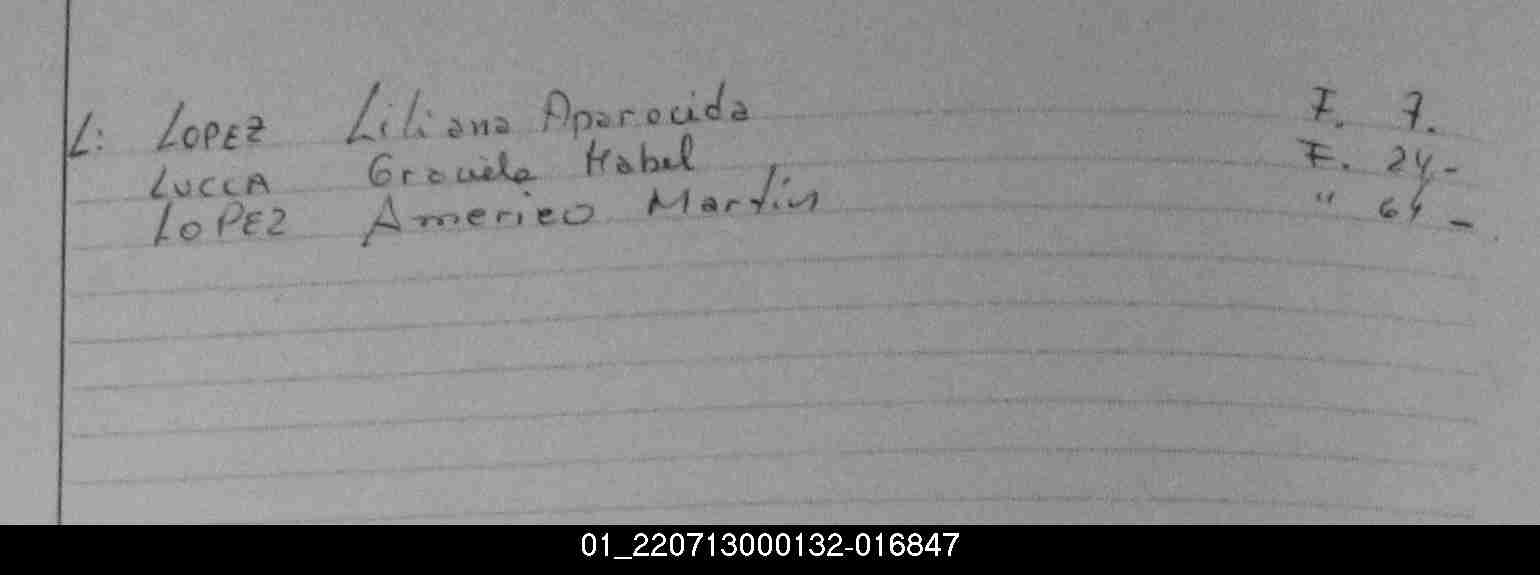 L: LOPEZ Liliana Aparecida F. 7.
LUCCA Graciela Mabel F. 24.-
LOPEZ Americo Martin " 64 -
01_220713000132-016847